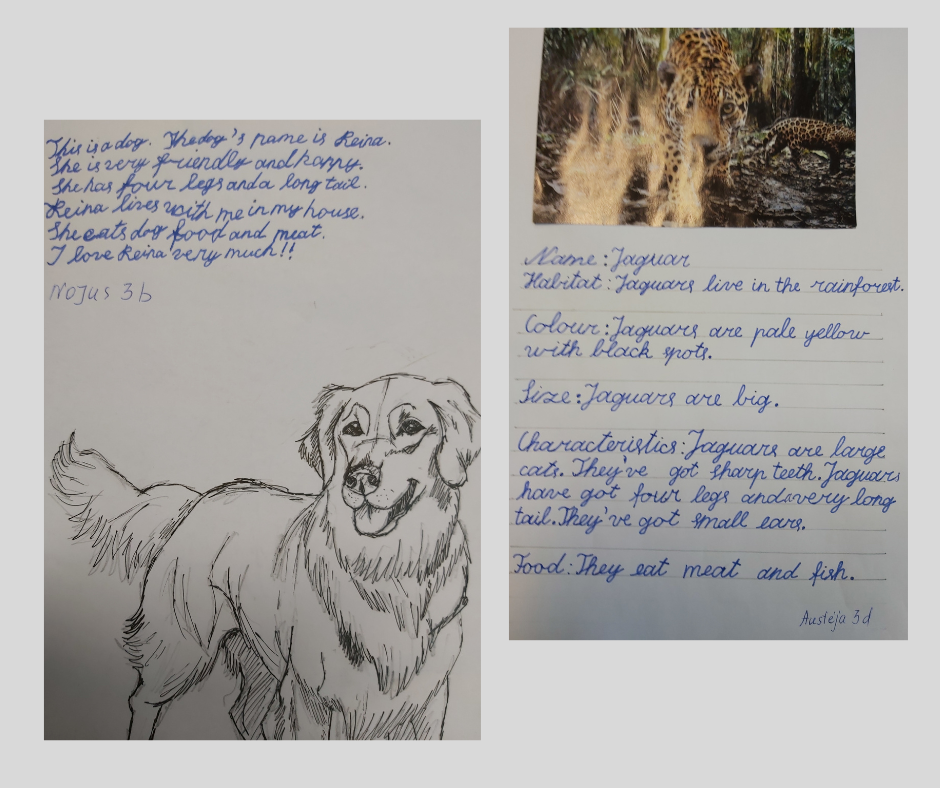 This is a dog. The dog's name is Reina.
She is very friendly and happy.
She has four legs and a long tail.
Reina lives with me in my house.
She eats dog food and meat.
I love Reina very much!!
Nojus 3b
Name: Jaguar
Habitat: Jaguars live in the rainforest.
Colour: Jaguars are pale yellow
with black spots.
Size: Jaguars are big.
Characteristics: Jaguars are large
cats. They've got sharp teeth. Jaguars
have got four legs and a very long
tail. They've got small ears.
Food: They eat meat and fish.
Austėja 3d